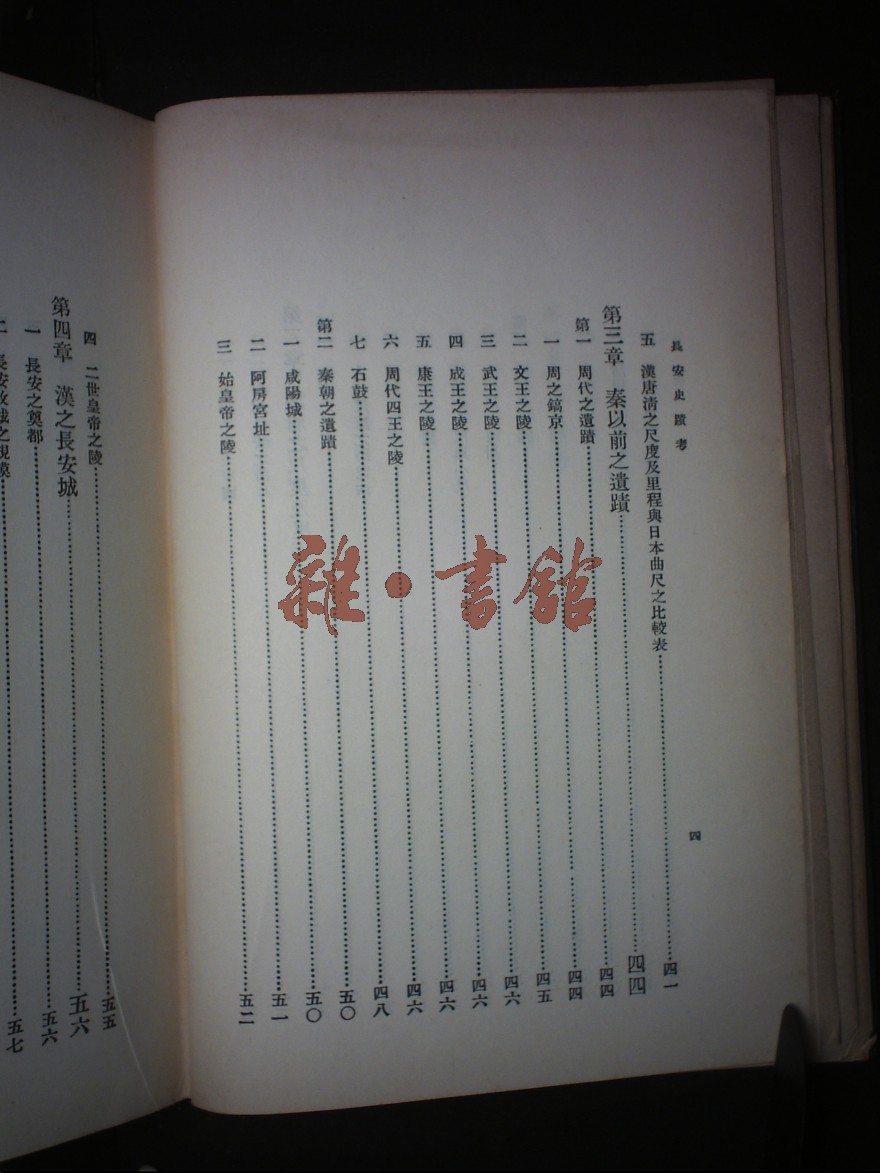 長安史蹟考
五 漢唐淸之尺度及里程與日本曲尺之比較表……四一
第三章 秦以前之遺蹟……四四
第一 周代之遺蹟……四四
一 周之鎬京……四四
二 文王之陵……四五
三 武王之陵……四六
四 成王之陵……四六
五 康王之陵……四六
六 周代四王之陵……四六
七 石鼓……四八
第二 秦朝之遺蹟……五〇
一 咸陽城……五〇
二 阿房宮址……五一
三 始皇帝之陵……五二
四
四 二世皇帝之陵……五五
第四章 漢之長安城……五六
一 長安之奠都……五六
二 長安故城之規模……五七
雜·書館